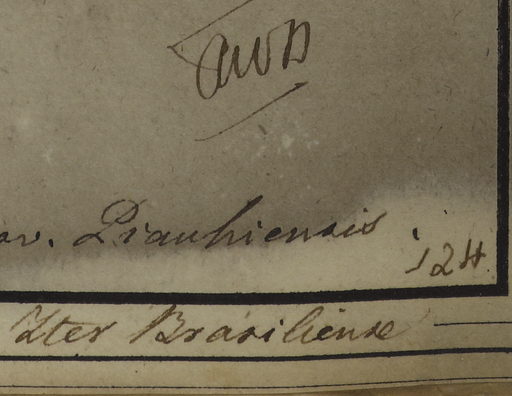 av. Piauhiensis.
124
Iter Brasiliense